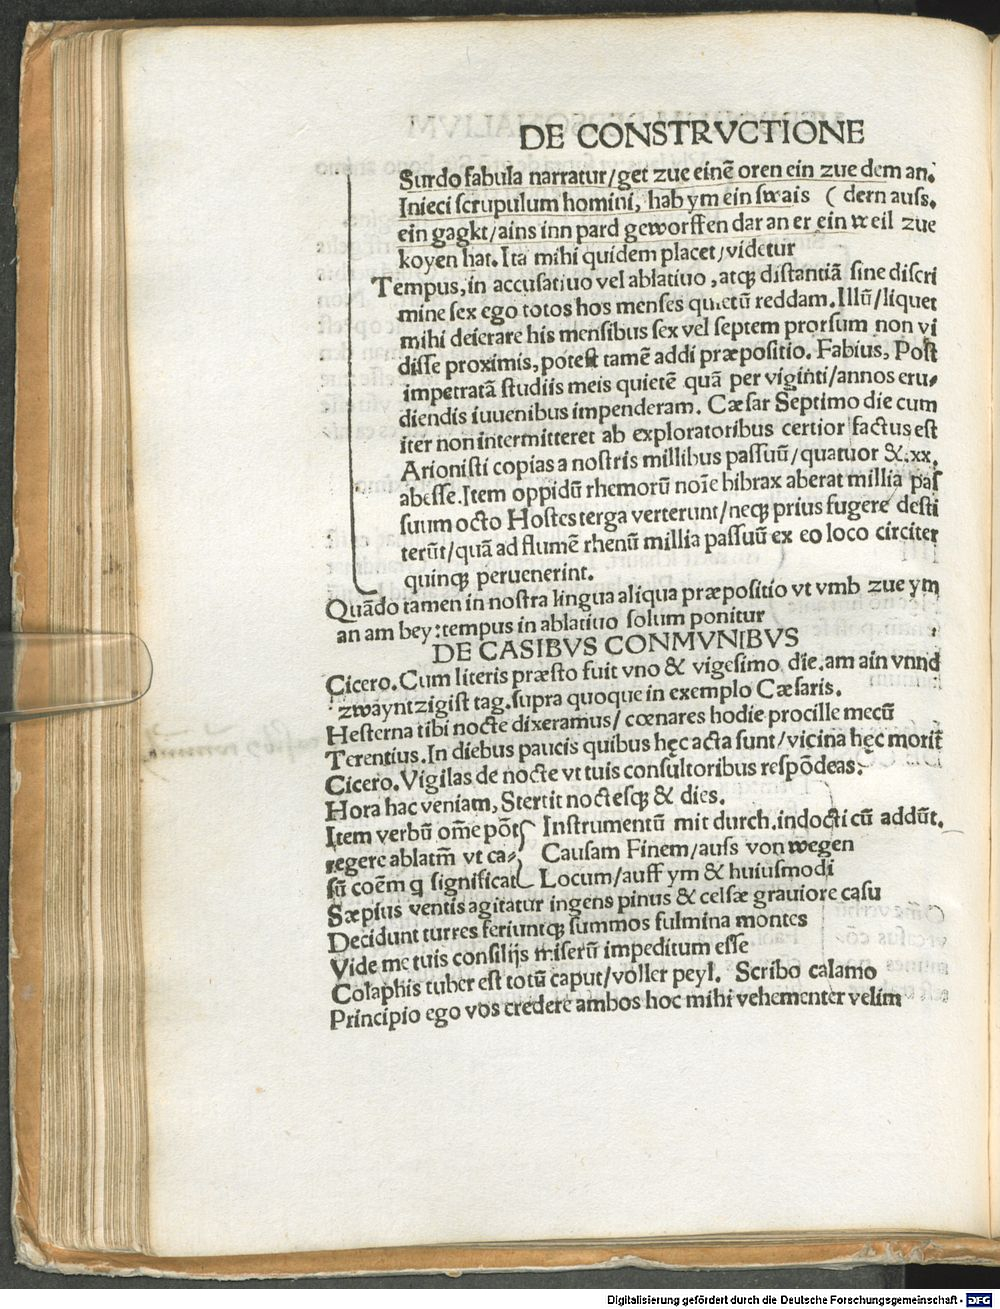 DE CONSTRVCTIONE
Surdo fabula narratur/get zue einē oren ein zue dem an.
Inieci scrupulum homini, hab ym ein swais ( dern auss.
ein gagkt/ains inn pard geworffen dar an er ein weil zue
koyen hat. Ita mihi quidem placet/videtur
Tempus, in accusatiuo vel ablatiuo, atqꝫ distantiā sine discri
mine sex ego totos hos menses quietū reddam. Illū/liquet
mihi deierare his mensibus sex vel septem prorsum non vi
disse proximis, potest tamē addi præpositio. Fabius, Post
impetratā studiis meis quietē quā per viginti/annos eru-
diendis iuuenibus impenderam. Cæsar Septimo die cum
iter non intermitteret ab exploratoribus certior factus est
Arionisti copias a nostris millibus passuū/quatuor &.xx.
abesse. Item oppidū rhemorū noīe bibrax aberat millia pas
suum octo Hostes terga verterunt/neqꝫ prius fugere desti
terūt/quā ad flumē rhenū millia passuū ex eo loco circiter
quinqꝫ peruenerint.
Quādo tamen in nostra lingua aliqua præpositio vt vmb zue ym
an am bey: tempus in ablatiuo solum ponitur
DE CASIBVS CONMVNIBVS
Cicero. Cum literis præsto fuit vno & vigesimo die. am ain vnnd
zwayntzigist tag. supra quoque in exemplo Cæsaris.
Hesterna tibi nocte dixeramus/ cœnares hodie procille mecū
Terentius. In diebus paucis quibus hęc acta sunt/vicina hęc morit̄
Cicero. Vigilas de nocte vt tuis consultoribus respōdeas.
Hora hac veniam, Stertit noctesqꝫ & dies.
Item verbū om̄e pōt Instrumentū mit durch. indocti cū addūt.
regere ablatm̄ vt ca- Causam Finem/auss von wegen
sū coēm q significat Locum/auff ym & huiusmodi
Sæpius ventis agitatur ingens pinus & celsæ grauiore casu
Decidunt turres feriuntqꝫ summos fulmina montes
Vide me tuis consilijs miserū impeditum esse
Colaphis tuber est totū caput/voller peyl. Scribo calamo
Principio ego vos credere ambos hoc mihi vehementer velim
Digitalisierung gefördert durch die Deutsche Forschungsgemeinschaft - DFG